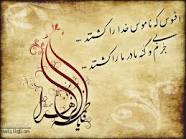 افسوس که ناموس خدا را کشتند ...
بی جرم و گنه مادر ما را کشتند ...
فاطمة الزهرا